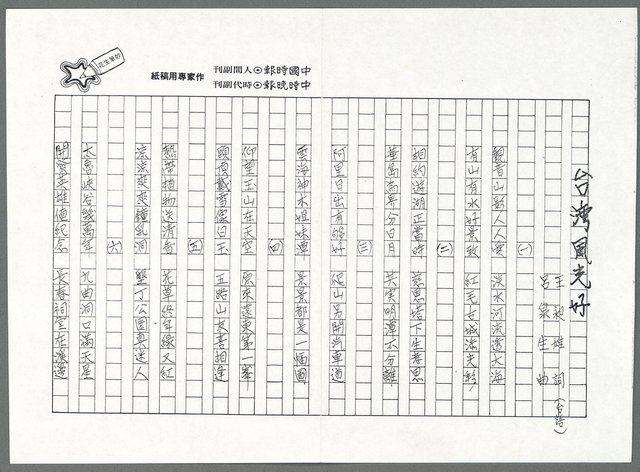 中國時報⊙人間副刊
中時晚報⊙時代副刊
作家專用稿紙
台灣風光好
王昶雄 詞
呂泉生 曲
(台語)
(一)
觀音山影人人愛 淡水河流透大海
有山有水好景致 紅毛古城滿光彩
(二)
相約遊湖正當時 慈恩塔下生意思
華島為界分日月 其實明潭不分離
(三)
阿里日出有夠好 爬山另開汽車道
雲海神木姐妹潭 景景都是一幅圖
(四)
仰望玉山在天空 原來遠東第一峯
頭頂戴雪像白玉 五路山友喜相逢
(五)
熱帶植物送清香 花草終年綠又紅
涼涼爽爽鐘乳洞 墾丁公園真迷人
(六)
太魯峽谷幾萬年 九曲洞口滿天星
開路英雄值紀念 長春祠堂在溪邊